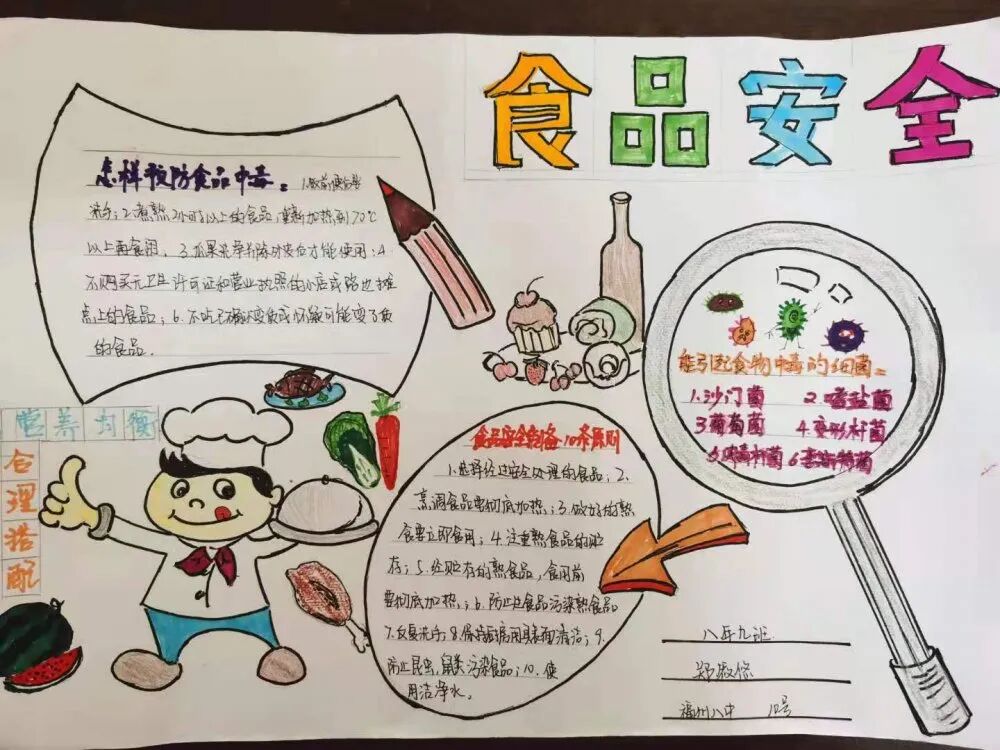 食品安全
怎样预防食品中毒：1.饭前便后要
洗手；2.煮熟2小时以上的食品，重新加热到70℃
以上再食用，3.瓜果洗净并除外皮后才能使用；4.
不购买无卫生许可证和营业执照的小店或路边摊
点上的食品；6.不吃已确认变质或怀疑可能变了质
的食品．
能引起食物中毒的细菌：
1.沙门菌 2.嗜盐菌
3葡萄菌 4.变形杆菌
菌 6 菌
营养均衡
合理搭配
食品安全 10条原则
1.选择经过安全处理的食品；2.
烹调食品要彻底加热；3.做好的熟
食要立即食用；4.注重熟食品的贮
存；5.经贮存的熟食品，食用前
要彻底加热；6.防止生食品污染熟食品
7.反复洗手；8.保持 用具表面清洁；9.
防止昆虫，鼠类污染食品；10．使
用洁净水．
八年九班
郑
福州八中 12号